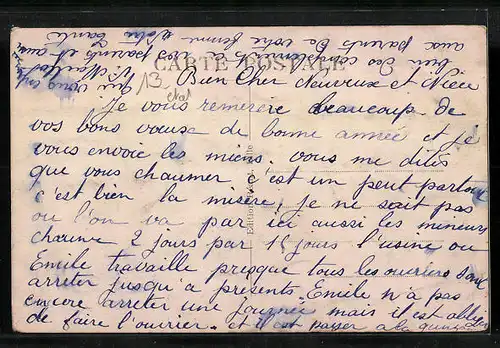 CARTE POSTALE
13
Bien Cher Neuveux et Niéce
Je vous remercie beaucoup de
vos bons vœuse de bonne année et je
vous envoie les miens. vous me dites
que vous chaumer c'est un peut partout
c'est bien la misère, je ne sait pas
ou l'on va par ici aussi les mineurs
chaume 2 jours par 15 jours l'usine ou
Emile travaille presque tous les ouvriers sont
arreter jusqu'a présents. Emile n'a pas
encore arreter une journée mais il est obliger
de faire l'ouvrier. et il est payer a la quinz
bien des compliments a vos parents et aussi
aux parents de votre femme